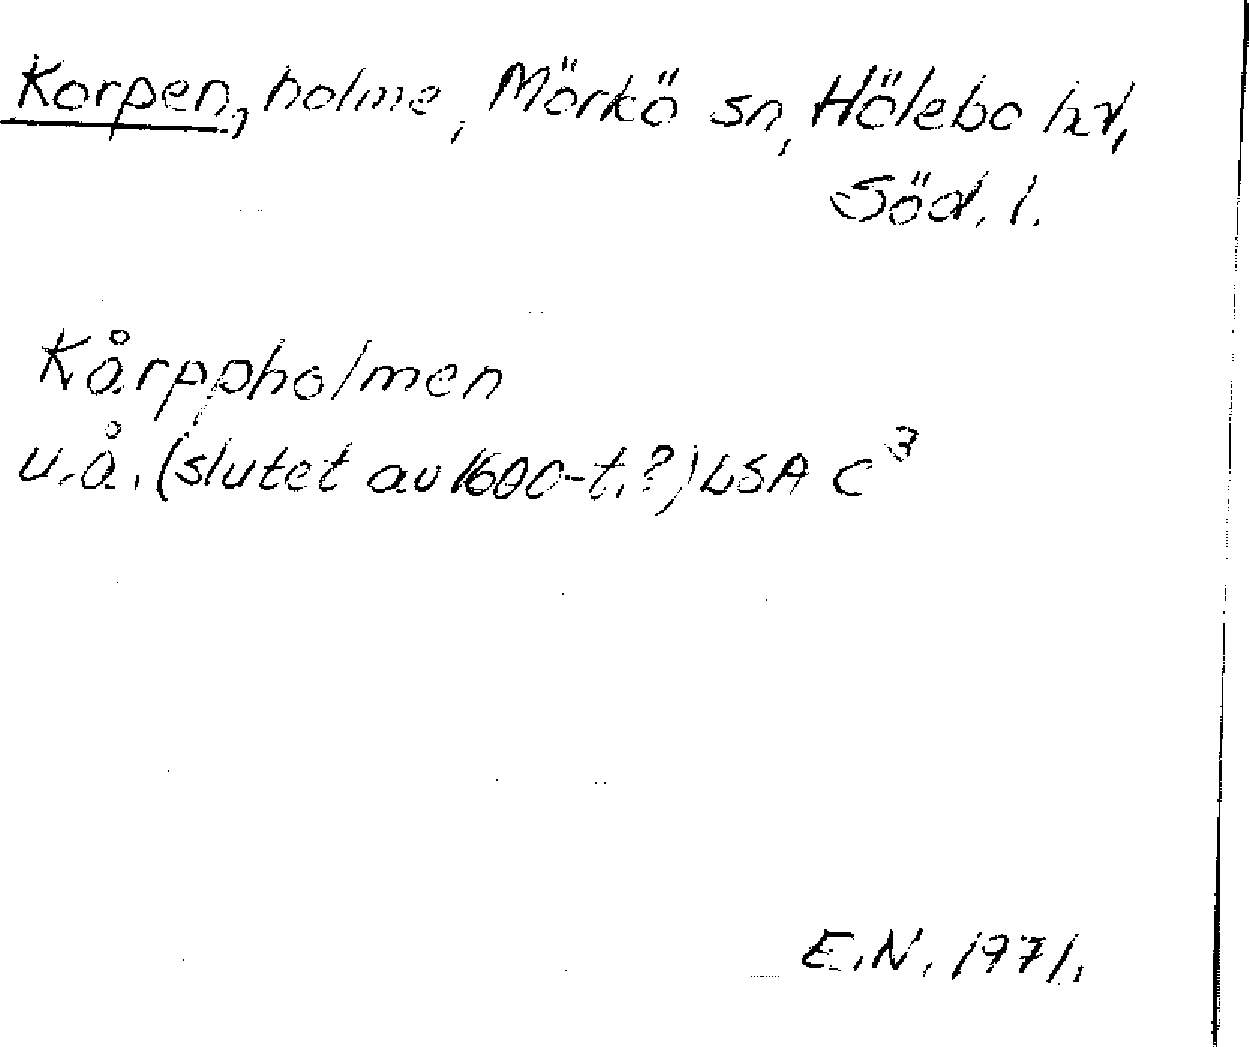 Korpen, holme, Mörkö sn, Hölebo hd,
Söd. l.
Kårppholmen
u.å. (slutet av 1600-t.?) LSA C³
E.N. 1971.